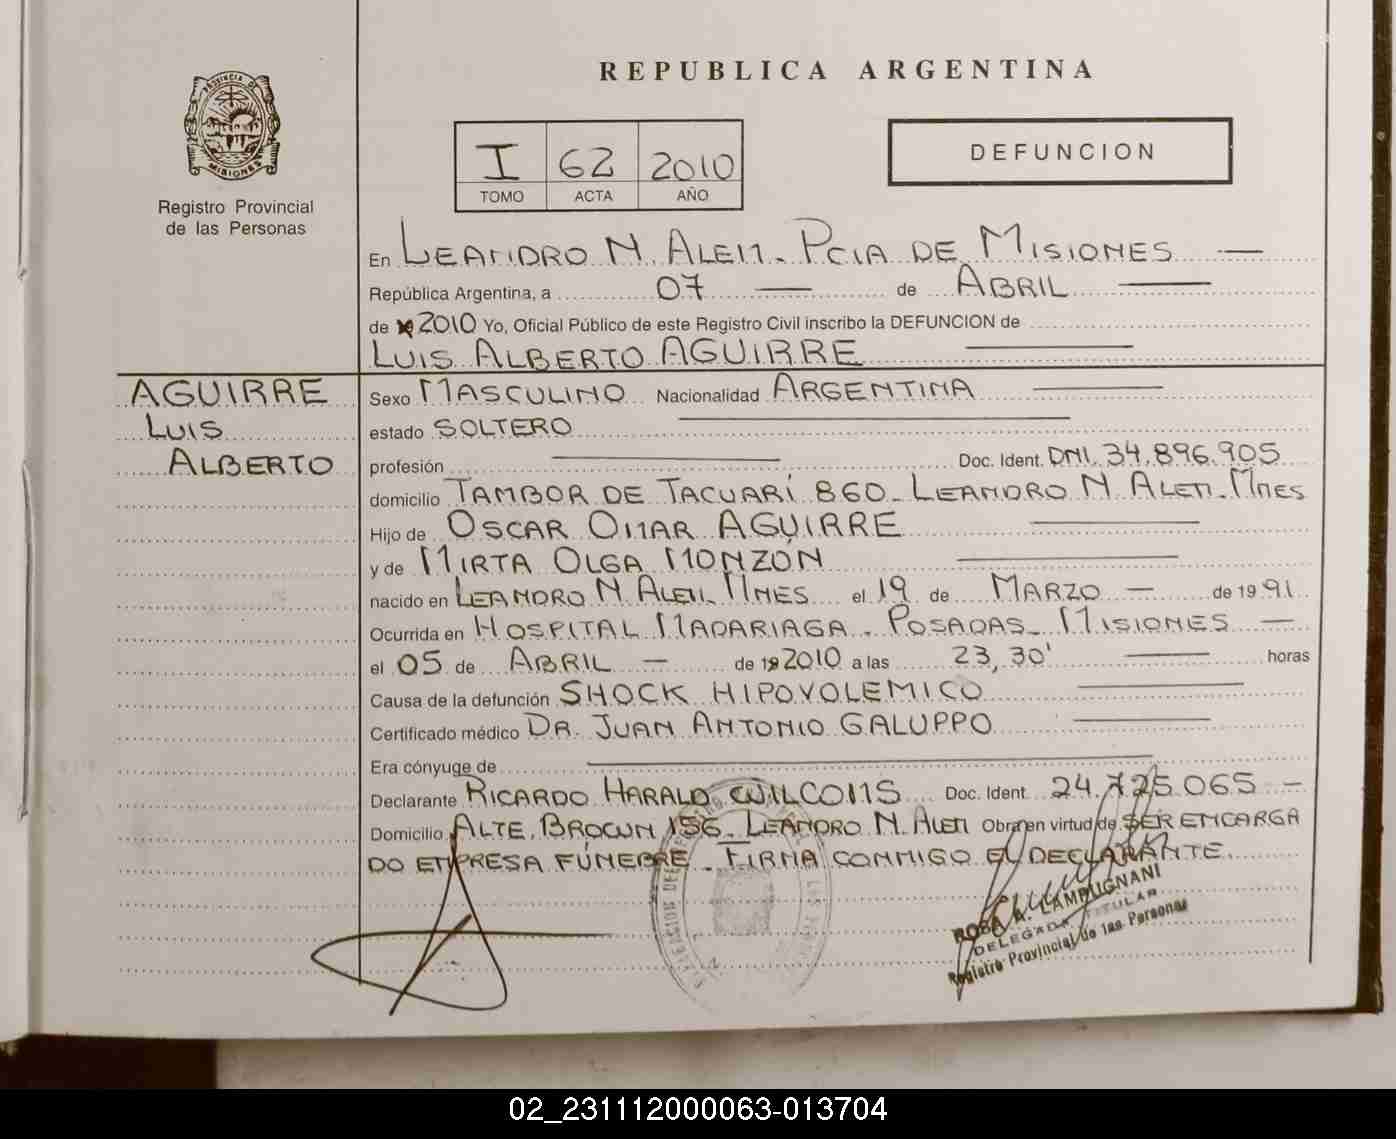 REPUBLICA ARGENTINA
PROVINCIA DE
MISIONES
Registro Provincial
de las Personas
I 62 2010
TOMO ACTA AÑO
DEFUNCION
En LEANDRO N. ALEM. PCIA DE MISIONES
República Argentina, a 07 de ABRIL
de 2010 Yo, Oficial Público de este Registro Civil inscribo la DEFUNCION de
LUIS ALBERTO AGUIRRE
AGUIRRE
LUIS
ALBERTO
Sexo MASCULINO Nacionalidad ARGENTINA
estado SOLTERO
profesión Doc. Ident. DNI. 34.896.905
domicilio TAMBOR DE TACUARÍ 860. LEANDRO N ALEM. MNES
Hijo de OSCAR OMAR AGUIRRE
y de MIRTA OLGA MONZÓN
nacido en LEANDRO N ALEM. MNES el 19 de MARZO de 1991
Ocurrida en HOSPITAL MADARIAGA. POSADAS. MISIONES
el 05 de ABRIL de 2010 a las 23,30' horas
Causa de la defunción SHOCK HIPOVOLEMICO
Certificado médico DR. JUAN ANTONIO GALUPPO
Era cónyuge de
Declarante RICARDO HARALD WILCOMS Doc. Ident. 24.725.065
Domicilio ALTE. BROWN 156. LEANDRO N. ALEM Obra en virtud de SER ENCARGA
DO EMPRESA FÚNEBRE. FIRMA CONMIGO EL DECLARANTE.
ROSA A. LAMPUGNANI
DELEGADA TITULAR
Registro Provincial de las Personas
02_231112000063-013704